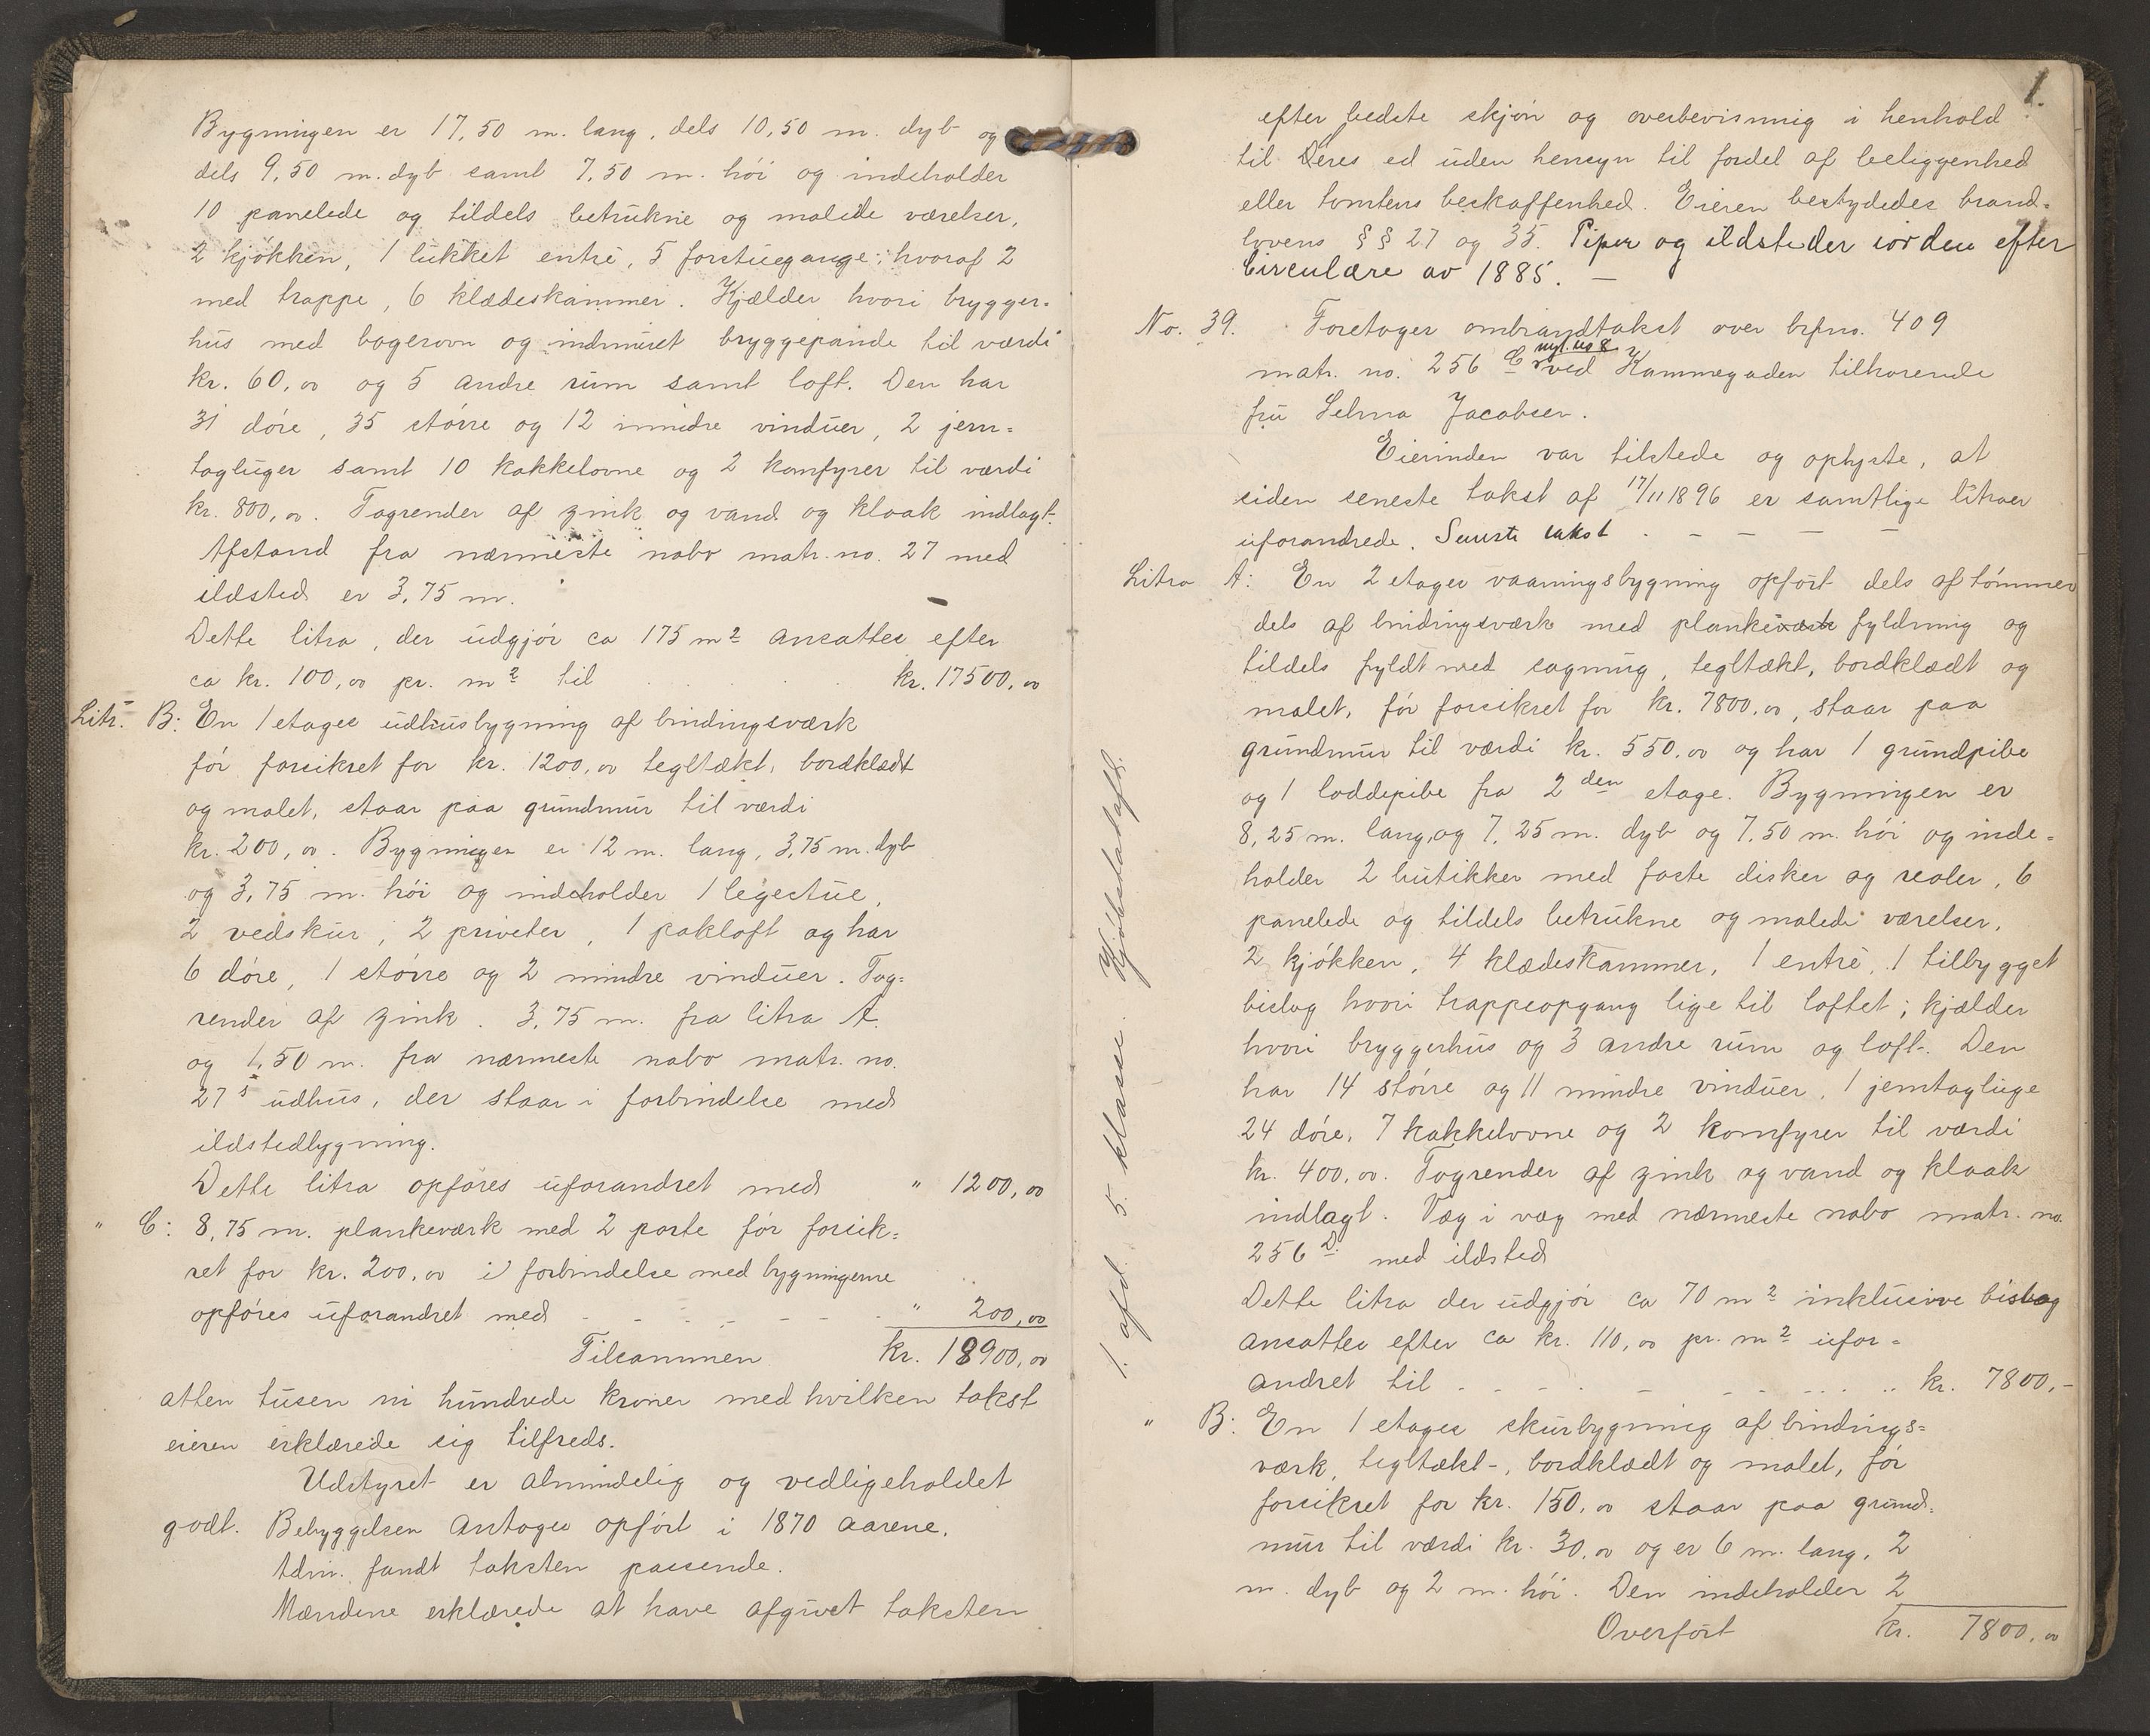 Bygningen er 17,50 m. lang, dels 10,50 m. dyb og
dels 9,50 m. dyb samt 7,50 m. høi og indeholder
10 panelede og tildels betrukne og malede værelser,
2 kjøkken, 1 lukket entré, 5 forstuegange, hvoraf 2
med trappe, 6 klædeskammer. Kjælder hvori brygger=
hus med bagerovn og indmuret bryggepande til værdi
kr. 60,00 og 5 andre rum samt loft. Den har
31 døre, 35 større og 12 mindre vinduer, 2 jern=
tagluger samt 10 kakkelovne og 2 komfyrer til værdi
kr. 800,00. Tagrender af zink og vand og kloak indlagt.
Afstand fra nærmeste nabo matr. no. 27 med
ildsted er 3,75 m.
Dette litra, der udgjør ca 175 m² ansattes efter
ca kr. 100,00 pr. m² til kr. 17500,00
Litr. B: En 1 etages udhusbygning af bindingsværk
før forsikret for kr. 1200,00 tegltækt, bordklædt
og malet, staar paa grundmur til værdi
kr. 200,00. Bygningen er 12 m. lang, 3,75 m. dyb
og 3,75 m. høi og indeholder 1 legestue,
2 vedskur, 2 priveter, 1 pakloft og har
6 døre, 1 større og 2 mindre vinduer. Tag=
render af zink. 3,75 m. fra litra A.
og 1,50 m. fra nærmeste nabo matr. no.
27s udhus, der staar i forbindelse med
ildstedbygning.
Dette litra opføres uforandret med " 1200,00
" C: 8,75 m. plankeværk med 2 porte før forsik=
ret for kr. 200,00 i forbindelse med bygningerne
opføres uforandret med - - - - - - " 200,00
Tilsammen kr. 18900,00
atten tusen ni hundrede kroner med hvilken takst
eieren erklærede sig tilfreds.
Udstyret er almindelig og vedligeholdet
godt. Bebyggelsen antages opført i 1870 aarene.
Adm. fandt taksten passende.
Mændene erklærede at have afgivet taksten
1.
efter bedste skjøn og overbevisning i henhold
til Deres ed uden hensyn til fordel af beliggenhed
eller tomtens beskaffenhed. Eieren bestydedes brand=
lovens §§ 27 og 35. Piper og ildsteder iorden efter
Circulære av 1885. —
No. 39. Foretages ombrandtakst over brfno. 409
matr. no. 256 C nyt no 8 ved Kammegaden tilhørende
fru Selma Jacobsen.
Eierinden var tilstede og oplyste, at
siden seneste takst af 17/11 1896 er samtlige litraer
uforandrede. Seneste takst . - - - -
Litra A: En 2 etages vaaningsbygning opført dels af tømmer
dels af bindingsværk med plankeværk fyldning og
tildels fyldt med sagmug, tegltækt, bordklædt og
malet, før forsikret for kr. 7800,00, staar paa
grundmur til værdi kr. 550,00 og har 1 grundpibe
og 1 loddepibe fra 2den etage. Bygningen er
8,25 m. lang, og 7,25 m. dyb og 7,50 m. høi og inde=
holder 2 butikker med faste disker og reoler, 6
panelede og tildels betrukne og malede værelser,
2 kjøkken, 4 klædeskammer, 1 entré, 1 tilbygget
bislag hvori trappeopgang lige til loftet; kjælder
hvori bryggerhus og 3 andre rum og loft. Den
har 14 større og 11 mindre vinduer, 1 jerntagluge
24 døre, 7 kakkelovne og 2 komfyrer til værdi
kr. 400,00. Tagrender af zink og vand og kloak
indlagt. Væg i væg med nærmeste nabo matr. no.
256 D. med ildsted
Dette litra der udgjør ca 70 m² inklusive bislag
ansattes efter ca kr. 110,00 pr. m² ufor=
andret til - - - - - - - - kr. 7800,-
" B: En 1 etages skurbygning af bindings=
værk, tegltækt, bordklædt og malet, før
forsikret for kr. 150,00 staar paa grund=
mur til værdi kr. 30,00 og er 6 m. lang, 2
m. dyb og 2 m. høi. Den indeholder 2
Overført kr. 7800,00
1. afd. 5. klasse. Kjøbstadafd.